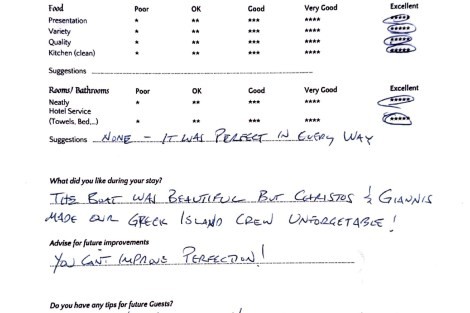 Food Poor OK Good Very Good Excellent
Presentation * ** *** **** *****
Variety * ** *** **** *****
Quality * ** *** **** *****
Kitchen (clean) * ** *** **** *****
Suggestions
Rooms/ Bathrooms Poor OK Good Very Good Excellent
Neatly * ** *** **** *****
Hotel Service
(Towels, Bed,..) * ** *** **** *****
Suggestions NONE - IT WAS PERFECT IN EVERY WAY
What did you like during your stay?
THE BOAT WAS BEAUTIFUL BUT CHRISTOS & GIANNIS
MADE OUR GREEK ISLAND CREW UNFORGETABLE!
Advise for future improvements
YOU CAN'T IMPROVE PERFECTION!
Do you have any tips for future Guests?